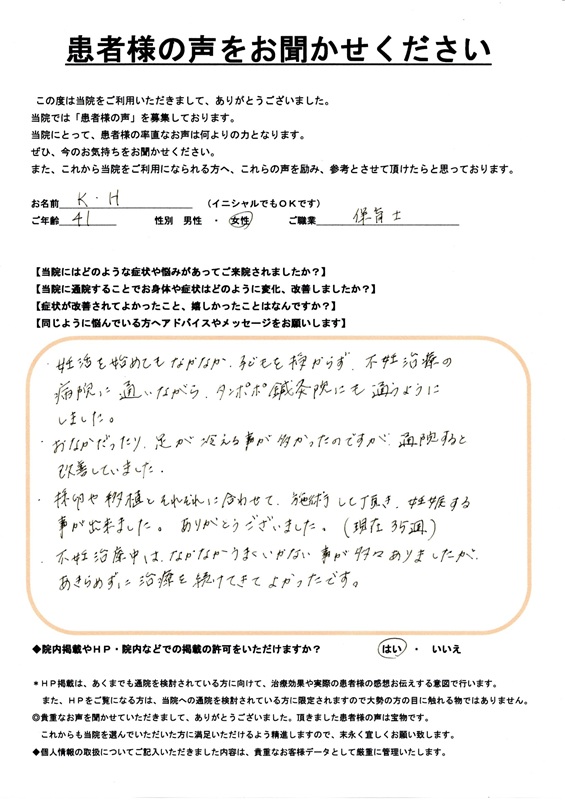 患者様の声をお聞かせください
この度は当院をご利用いただきまして、ありがとうございました。
当院では「患者様の声」を募集しております。
当院にとって、患者様の率直なお声は何よりの力となります。
ぜひ、今のお気持ちをお聞かせください。
また、これから当院をご利用になられる方へ、これらの声を励み、参考とさせて頂けたらと思っております。
お名前 K・H （イニシャルでもＯＫです）
ご年齢 41 性別 男性 ・ 女性 ご職業 保育士
【当院にはどのような症状や悩みがあってご来院されましたか？】
【当院に通院することでお身体や症状はどのように変化、改善しましたか？】
【症状が改善されてよかったこと、嬉しかったことはなんですか？】
【同じように悩んでいる方へアドバイスやメッセージをお願いします】
・妊活を始めてもなかなか、子どもを授からず、不妊治療の
病院に通いながら、タンポポ鍼灸院にも通うように
しました。
・おなかだったり、足が冷える事が多かったのですが、通院すると
改善していました。
・採卵や移植とそれぞれに合わせて、施術して頂き、妊娠する
事が出来ました。ありがとうございました。（現在35週）
・不妊治療中は、なかなかうまくいかない事が多々ありましたが、
あきらめずに治療を続けてきてよかったです。
◆院内掲載やＨＰ・院内などでの掲載の許可をいただけますか？ はい ・ いいえ
＊ＨＰ掲載は、あくまでも通院を検討されている方に向けて、治療効果や実際の患者様の感想お伝えする意図で行います。
また、ＨＰをご覧になる方は、当院への通院を検討されている方に限定されますので大勢の方の目に触れる物ではありません。
◎貴重なお声を聞かせていただきまして、ありがとうございました。頂きました患者様の声は宝物です。
これからも当院を選んでいただいた方に満足いただけるよう精進しますので、末永く宜しくお願い致します。
◆個人情報の取扱についてご記入いただきました内容は、貴重なお客様データとして厳重に管理いたします。